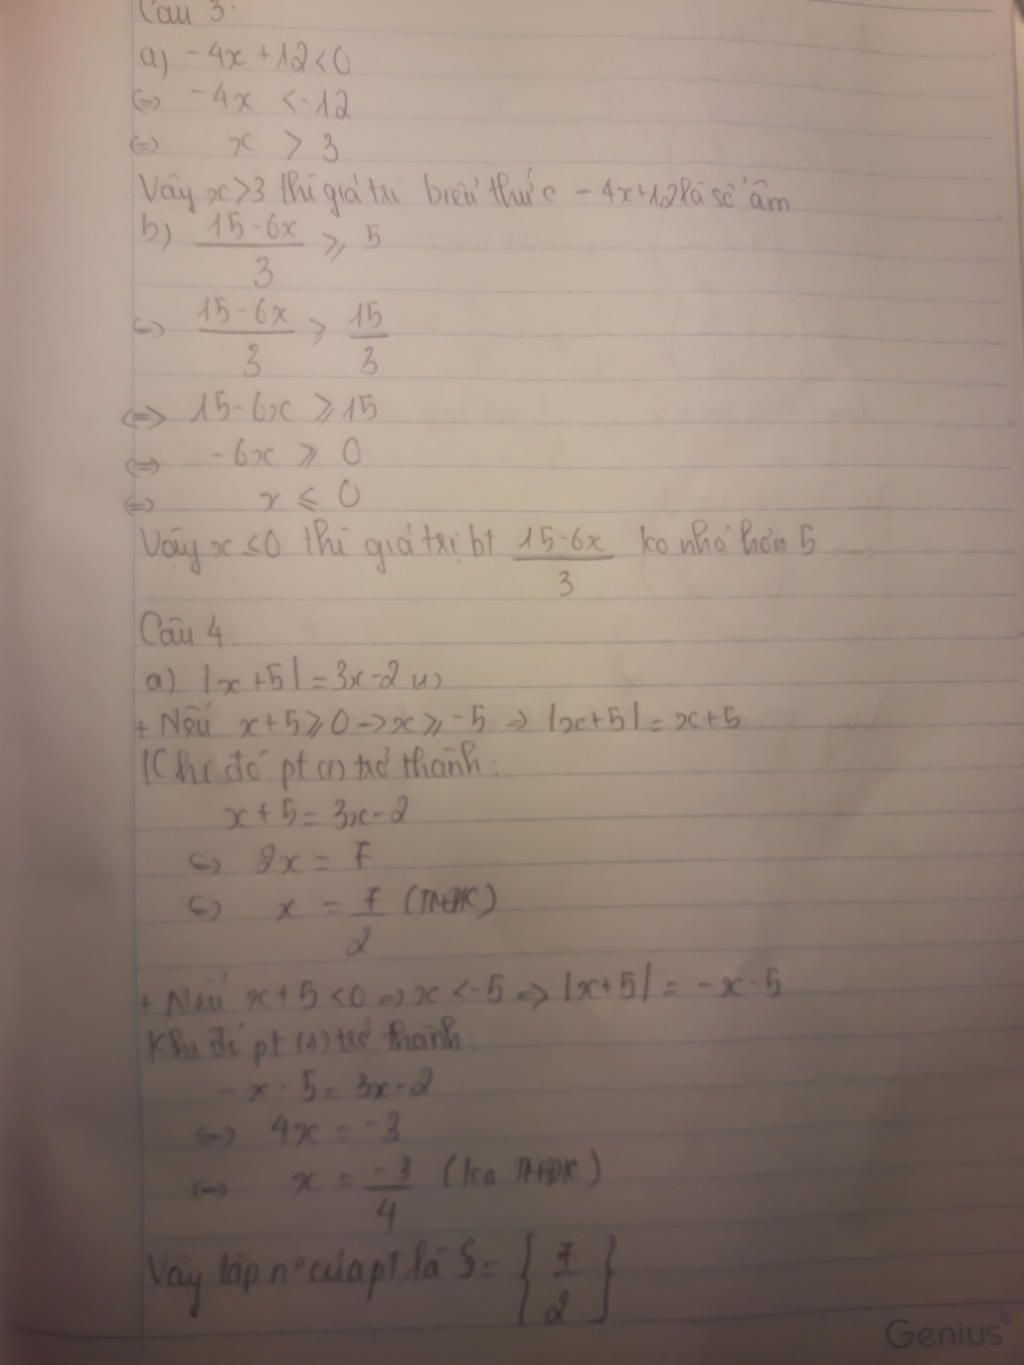 Câu 3:
a) -4x +12<0
<=> -4x <-12
<=> x > 3
Vậy x>3 thì giá trị biểu thức -4x+12 là số âm
b) (15-6x)/3 ≥ 5
<=> (15-6x)/3 ≥ 15/3
<=> 15-6x ≥ 15
<=> -6x ≥ 0
<=> x ≤ 0
Vậy x ≤ 0 thì giá trị bt (15-6x)/3 ko nhỏ hơn 5
Câu 4
a) |x+5| = 3x-2 (1)
+ Nếu x+5 ≥ 0 -> x ≥ -5 => |x+5| = x+5
Khi đó pt (1) trở thành:
x+5 = 3x-2
<=> 2x = 7
<=> x = 7/2 (TMĐK)
+ Nếu x+5 <0 => x <-5 => |x+5| = -x-5
Khi đó pt (1) trở thành:
-x-5 = 3x-2
<=> 4x = -3
<=> x = -3/4 (ko TMĐK)
Vậy tập n° của pt là S = {7/2}
Genius